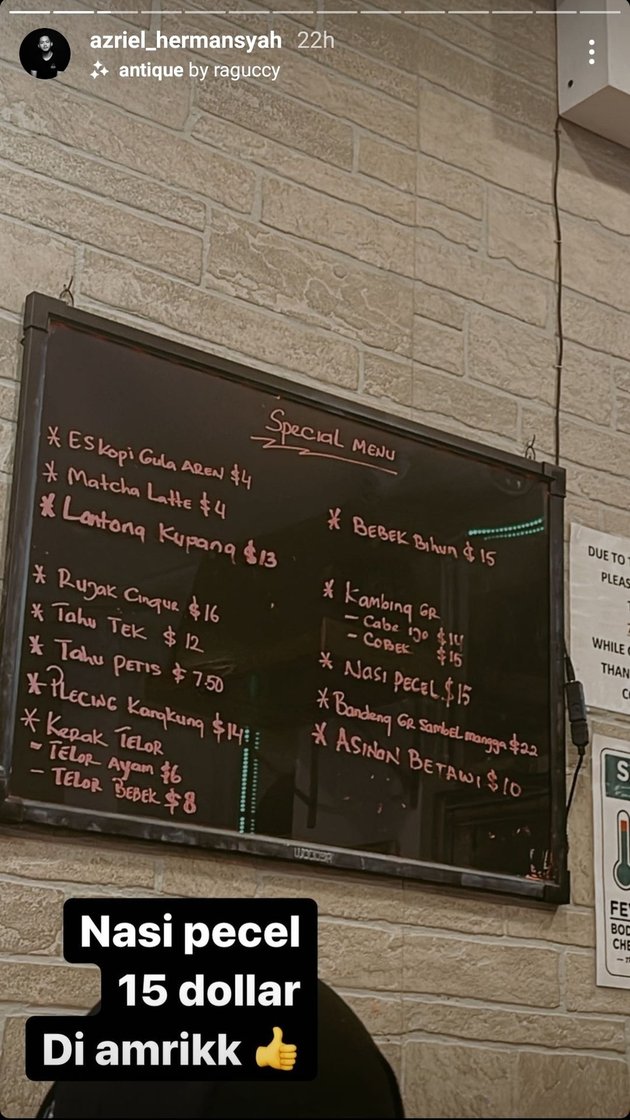 azriel_hermansyah 22h
antique by raguccy
Special MENU
* ES Kopi Gula AREN $4
* Matcha Latte $4
* Lontong Kupang $13
* Rujak Cingur $16
* Tahu TEK $12
* Tahu PETIS $7.50
* PLECING Kangkung $14
* Kerak TELOR
- TELOR Ayam $6
- TELOR BEBEK $8
* BEBEK Bihun $15
* Kambing GR
- Cabe Ijo $14
- COBEK $15
* NASI PECEL $15
* Bandeng GR Sambel mangga $22
* ASINAN BETAWI $10
DUE TO
PLEAS
WHILE
THAN
S
FE
BOD
CHE
Nasi pecel
15 dollar
Di amrikk 👍